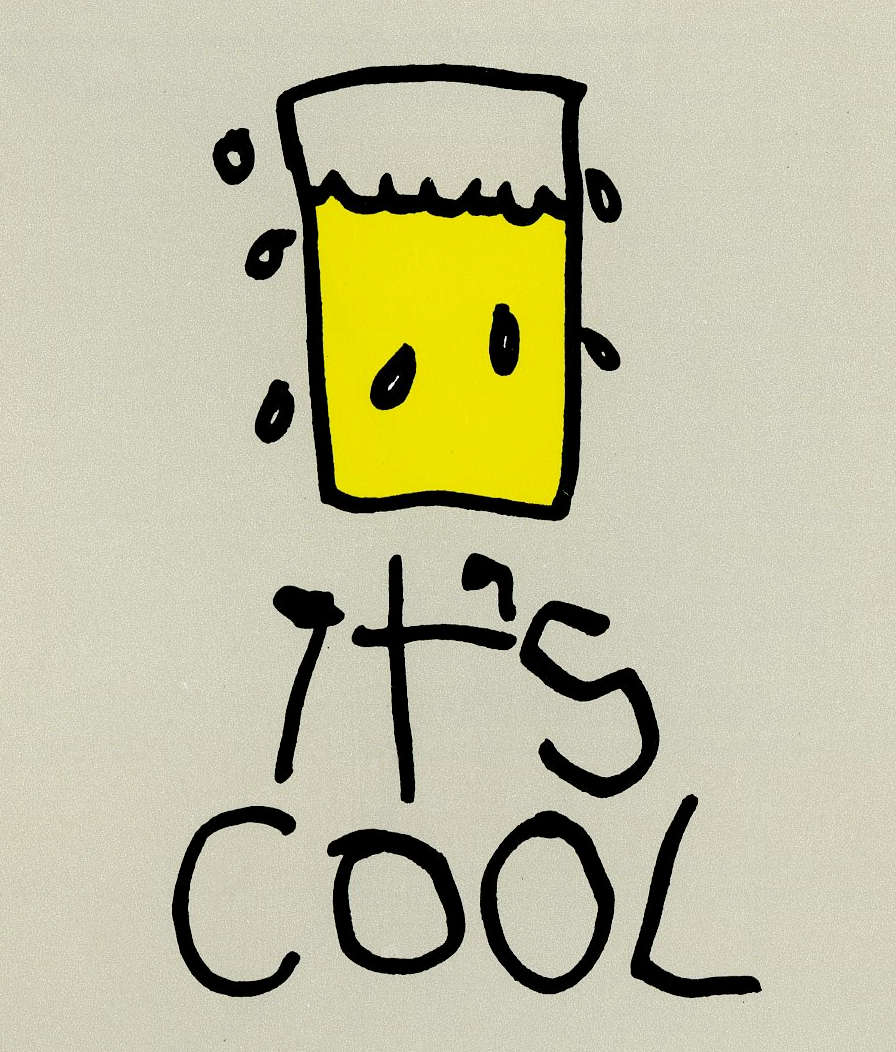 it's
COOL